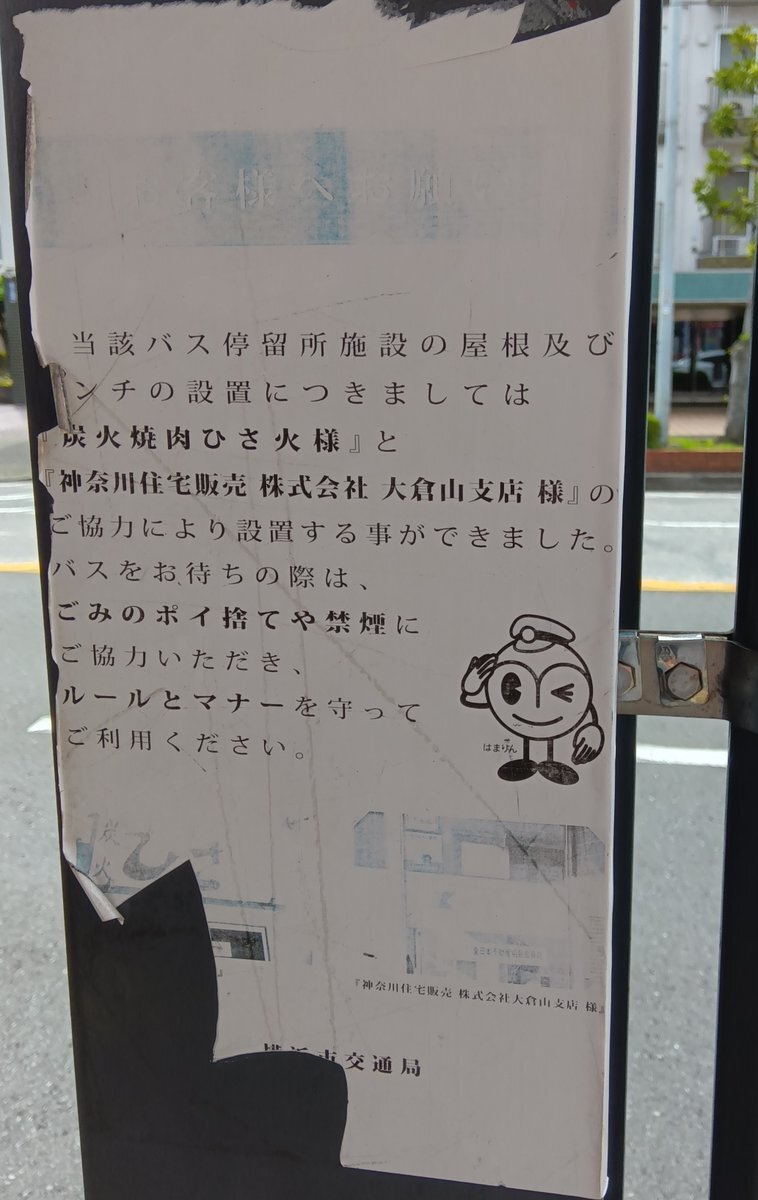 客様へお願い
当該バス停留所施設の屋根及び
ンチの設置につきましては
『炭火焼肉ひさ火様』と
『神奈川住宅販売 株式会社 大倉山支店 様』の
ご協力により設置する事ができました。
バスをお待ちの際は、
ごみのポイ捨てや禁煙に
ご協力いただき、
ルールとマナーを守って
ご利用ください。
はまりん
炭火
ひさ
『神奈川住宅販売 株式会社大倉山支店 様』
横浜市交通局